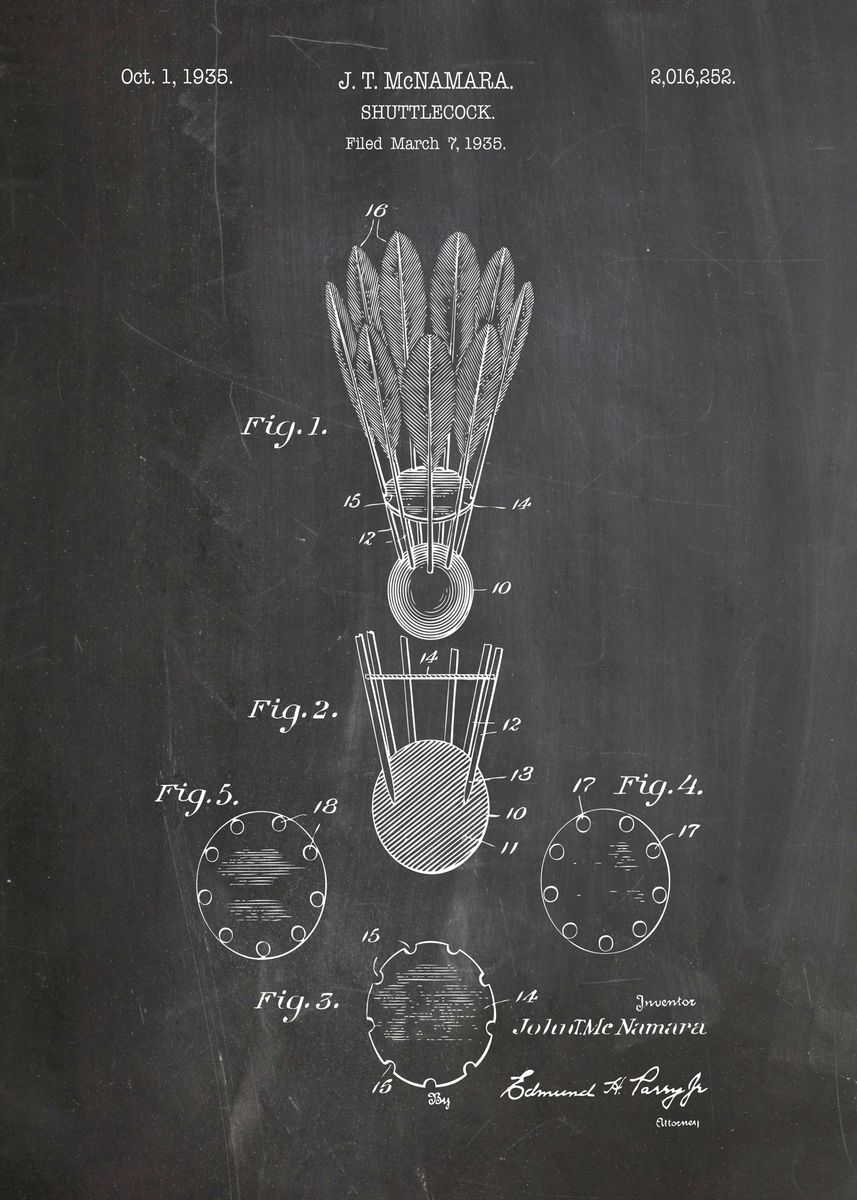 Oct. 1, 1935.
J. T. McNAMARA.
2,016,252.
SHUTTLECOCK.
Filed March 7, 1935.
16
Fig.1.
15
14
12
10
14
Fig.2.
12
13
Fig.5.
18
17
Fig.4.
10
17
11
15
Fig.3.
14
Inventor
John T. Mc Namara
15
By
Edmund H. Parry Jr
Attorney